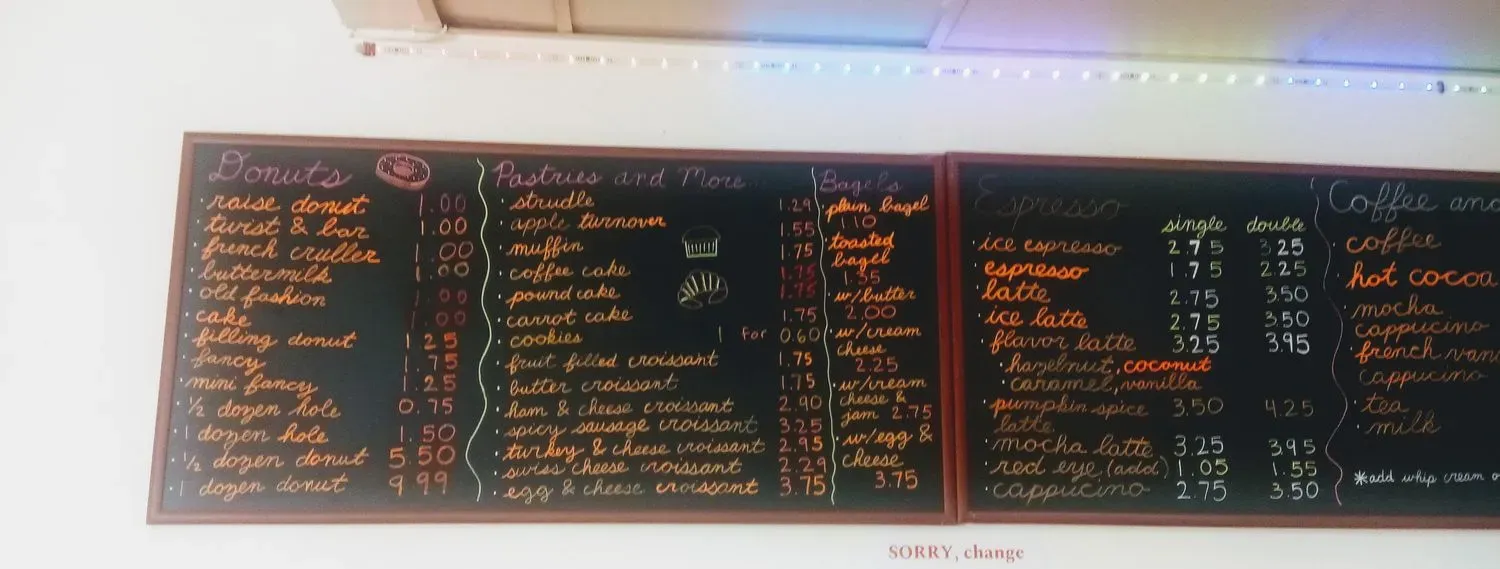 Donuts
· raise donut 1.00
· twist & bar 1.00
· french cruller 1.00
· buttermilk 1.00
· old fashion 1.00
· cake 1.00
· filling donut 1.25
· fancy 1.75
· mini fancy 1.25
· 1/2 dozen hole 0.75
· 1 dozen hole 1.50
· 1/2 dozen donut 5.50
· 1 dozen donut 9.99
Pastries and More
· strudle 1.29
· apple turnover 1.55
· muffin 1.75
· coffee cake 1.75
· pound cake 1.75
· carrot cake 1.75
· cookies 1 For 0.60
· fruit filled croissant 1.75
· butter croissant 1.75
· ham & cheese croissant 2.90
· spicy sausage croissant 3.25
· turkey & cheese croissant 2.95
· swiss cheese croissant 2.29
· egg & cheese croissant 3.75
Bagels
· plain bagel
1.10
· toasted
bagel
1.35
· w/butter
2.00
· w/cream
cheese
2.25
· w/cream
cheese &
jam 2.75
· w/egg &
cheese
3.75
Espresso
single double
· ice espresso 2.75 3.25
· espresso 1.75 2.25
· latte 2.75 3.50
· ice latte 2.75 3.50
· flavor latte 3.25 3.95
· hazelnut, coconut
· caramel, vanilla
· pumpkin spice 3.50 4.25
latte
· mocha latte 3.25 3.95
· red eye (add) 1.05 1.55
· cappucino 2.75 3.50
Coffee and
· coffee
· hot cocoa
· mocha
cappucino
· french vani
cappucino
· tea
· milk
*add whip cream o
SORRY, change